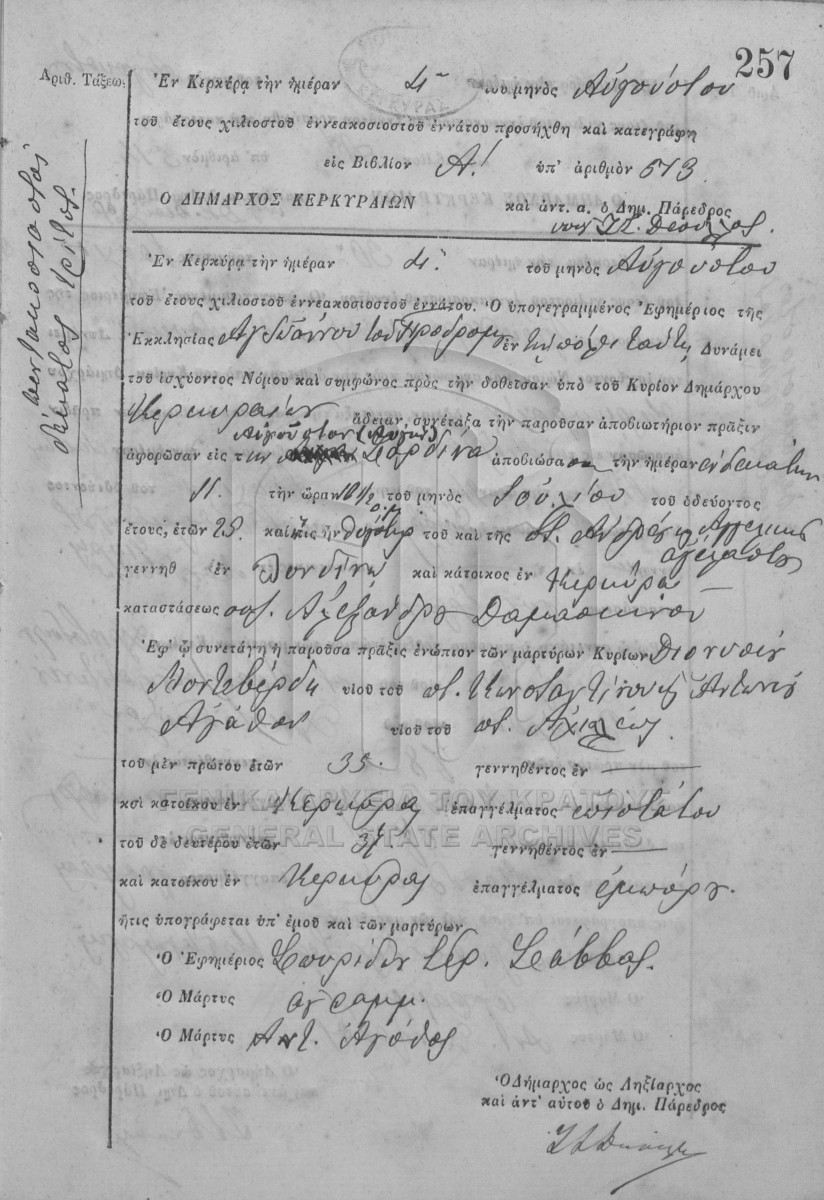 257
Αριθ. Τάξεως
πεντακοσιοστός
Ἐν Κερκύρᾳ τὴν ἡμέραν 4 τοῦ μηνὸς Αὐγούστου
τοῦ ἔτους χιλιοστοῦ ἐννεακοσιοστοῦ ἐννάτου προσήχθη καὶ κατεγράφη
εἰς Βιβλίον Α! ὑπ' ἀριθμὸν 573
Ο ΔΗΜΑΡΧΟΣ ΚΕΡΚΥΡΑΙΩΝ καὶ ἀντ. α. ὁ Δημ. Πάρεδρος
Ἐν Κερκύρᾳ τὴν ἡμέραν 4 τοῦ μηνὸς Αὐγούστου
τοῦ ἔτους χιλιοστοῦ ἐννεακοσιοστοῦ ἐννάτου. Ὁ ὑπογεγραμμένος Ἐφημέριος τῆς
Ἐκκλησίας Ἁγ Ἰωάννου τοῦ Προδρόμου ἐν τῇ πόλει ταύτῃ Δυνάμει
τοῦ ἰσχύοντος Νόμου καὶ συμφώνος πρὸς τὴν δοθεῖσαν ὑπὸ τοῦ Κυρίου Δημάρχου
Κερκυραίων ἄδειαν, συνέταξα τὴν παροῦσαν ἀποβιωτήριον πρᾶξιν
ἀφορῶσαν εἰς τὴν ἀποβιώσασαν τὴν ἡμέραν ἑνδεκάτην
11. τὴν ὥραν 10 1/2 τοῦ μηνὸς Ἰουλίου τοῦ ὁδεύοντος
ἔτους, ἐτῶν 25 καὶ ἥτις ἦν θυγάτηρ τοῦ καὶ τῆς
γεννηθ ἐν Λονδίνῳ καὶ κάτοικος ἐν Κερκύρᾳ
καταστάσεως συζ. Ἀλεξάνδρου Δαμασκινοῦ
Ἐφ' ᾧ συνετάγη ἡ παροῦσα πρᾶξις ἐνώπιον τῶν μαρτύρων Κυρίων Διονυσίου
Μοντεβέρδη υἱοῦ τοῦ ποτ. Κωνσταντίνου καὶ Ἀντωνίου
Ἀγάθου υἱοῦ τοῦ ποτ. Ἀχιλλέως
τοῦ μὲν πρώτου ἐτῶν 35 γεννηθέντος ἐν
καὶ κατοίκου ἐν Κερκύρᾳ ἐπαγγέλματος ἐπιστάτου
τοῦ δὲ δευτέρου ἐτῶν γεννηθέντος ἐν
καὶ κατοίκου ἐν Κερκύρᾳ ἐπαγγέλματος ἐμπόρου.
ἥτις ὑπογράφεται ὑπ' ἐμοῦ καὶ τῶν μαρτύρων
Ὁ Ἐφημέριος Σπυρίδων Ιερ. Σάββας.
Ὁ Μάρτυς ἀγραμμ.
Ὁ Μάρτυς Αντ. Ἀγάθος
Ὁ Δήμαρχος ὡς Ληξίαρχος
καὶ ἀντ' αὐτοῦ ὁ Δημ. Πάρεδρος
ΓΕΝΙΚΑ ΑΡΧΕΙΑ ΤΟΥ ΚΡΑΤΟΥΣ
GENERAL STATE ARCHIVES